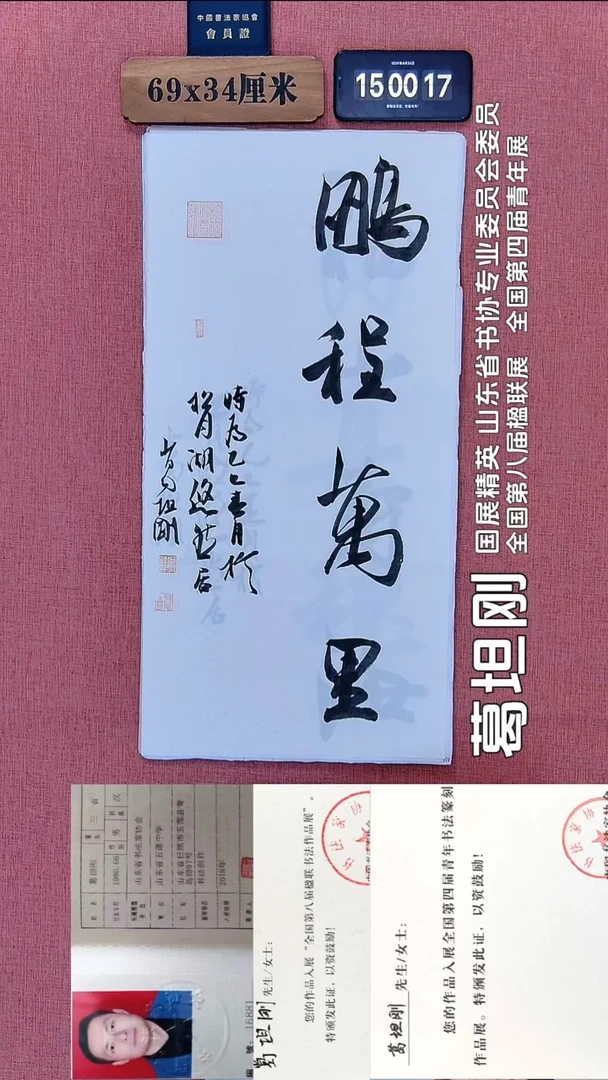 中國書法家協會
會員證
69x34厘米
15 00 17
鵬程萬里
時為乙巳春月於
悠然居
葛坦刚
国展精英 山东省书协专业委员会委员
全国第八届楹联展 全国第四届青年展
葛坦刚
三省
1980.06
男
汉
山东省书法家协会
山东省五莲中学
书法创作
2018年
16881
葛坦刚 先生/女士:
您的作品入展“全国第八届楹联书法作品展”。
特颁发此证,以资鼓励!
葛坦刚 先生/女士:
您的作品入展全国第四届青年书法篆刻
作品展。特颁发此证,以资鼓励!